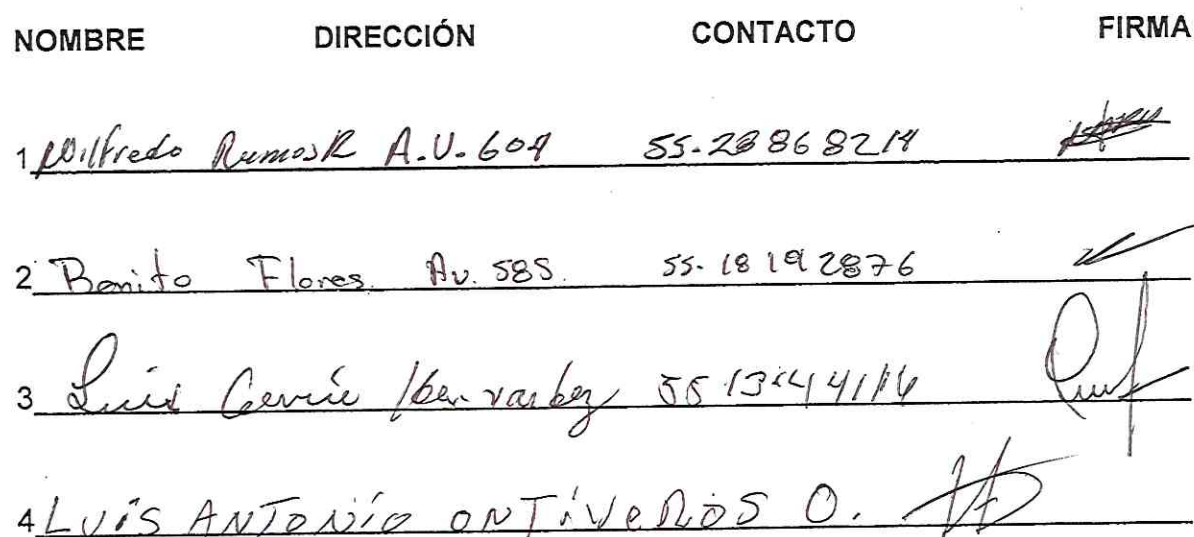 NOMBRE DIRECCIÓN CONTACTO FIRMA
1 Wilfredo Ramos R A.V. 604 55-28868214
2 Benito Flores. Av. 585. 55-18192876
3 Luis 55
4 LUIS ANTONIO ONTIVEROS O.